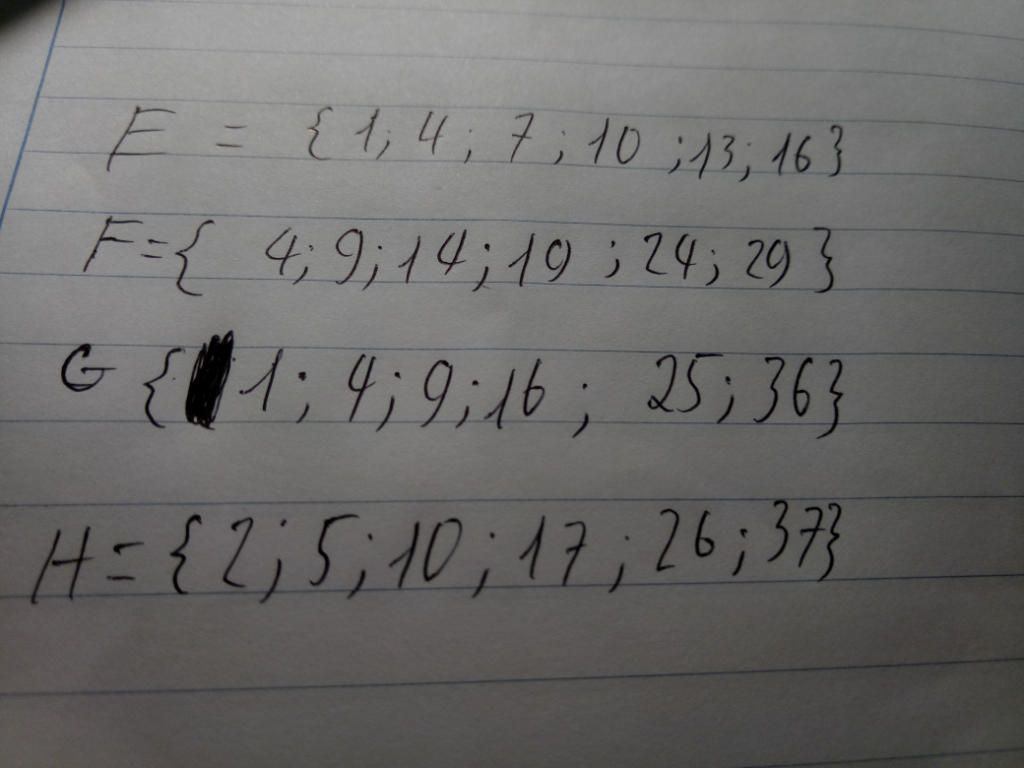 E = {1; 4; 7; 10; 13; 16}
F = { 4; 9; 14; 19; 24; 29}
G { 1; 4; 9; 16; 25; 36}
H = {2; 5; 10; 17; 26; 37}